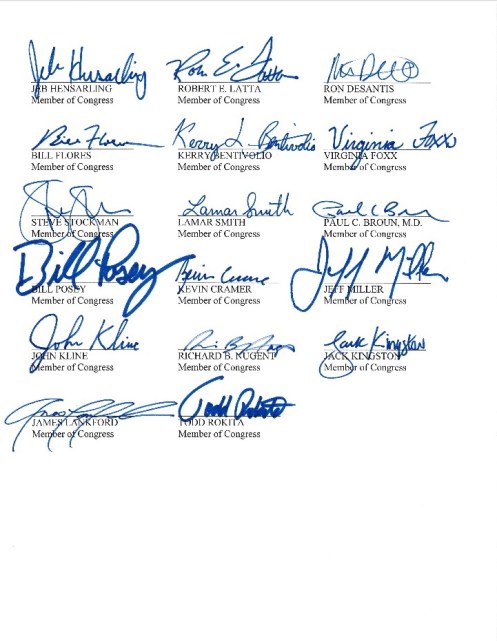 Jeb Hensarling Robert E. Latta Ron DeSantis
JEB HENSARLING ROBERT E. LATTA RON DESANTIS
Member of Congress Member of Congress Member of Congress
Bill Flores Kerry L Bentivolio Virginia Foxx
BILL FLORES KERRY BENTIVOLIO VIRGINIA FOXX
Member of Congress Member of Congress Member of Congress
Lamar Smith Paul C Broun
STEVE STOCKMAN LAMAR SMITH PAUL C. BROUN, M.D.
Member of Congress Member of Congress Member of Congress
Bill Posey Kevin Cramer Jeff Miller
BILL POSEY KEVIN CRAMER JEFF MILLER
Member of Congress Member of Congress Member of Congress
John Kline Jack Kingston
JOHN KLINE RICHARD B. NUGENT JACK KINGSTON
Member of Congress Member of Congress Member of Congress
Todd Rokita
JAMES LANKFORD TODD ROKITA
Member of Congress Member of Congress